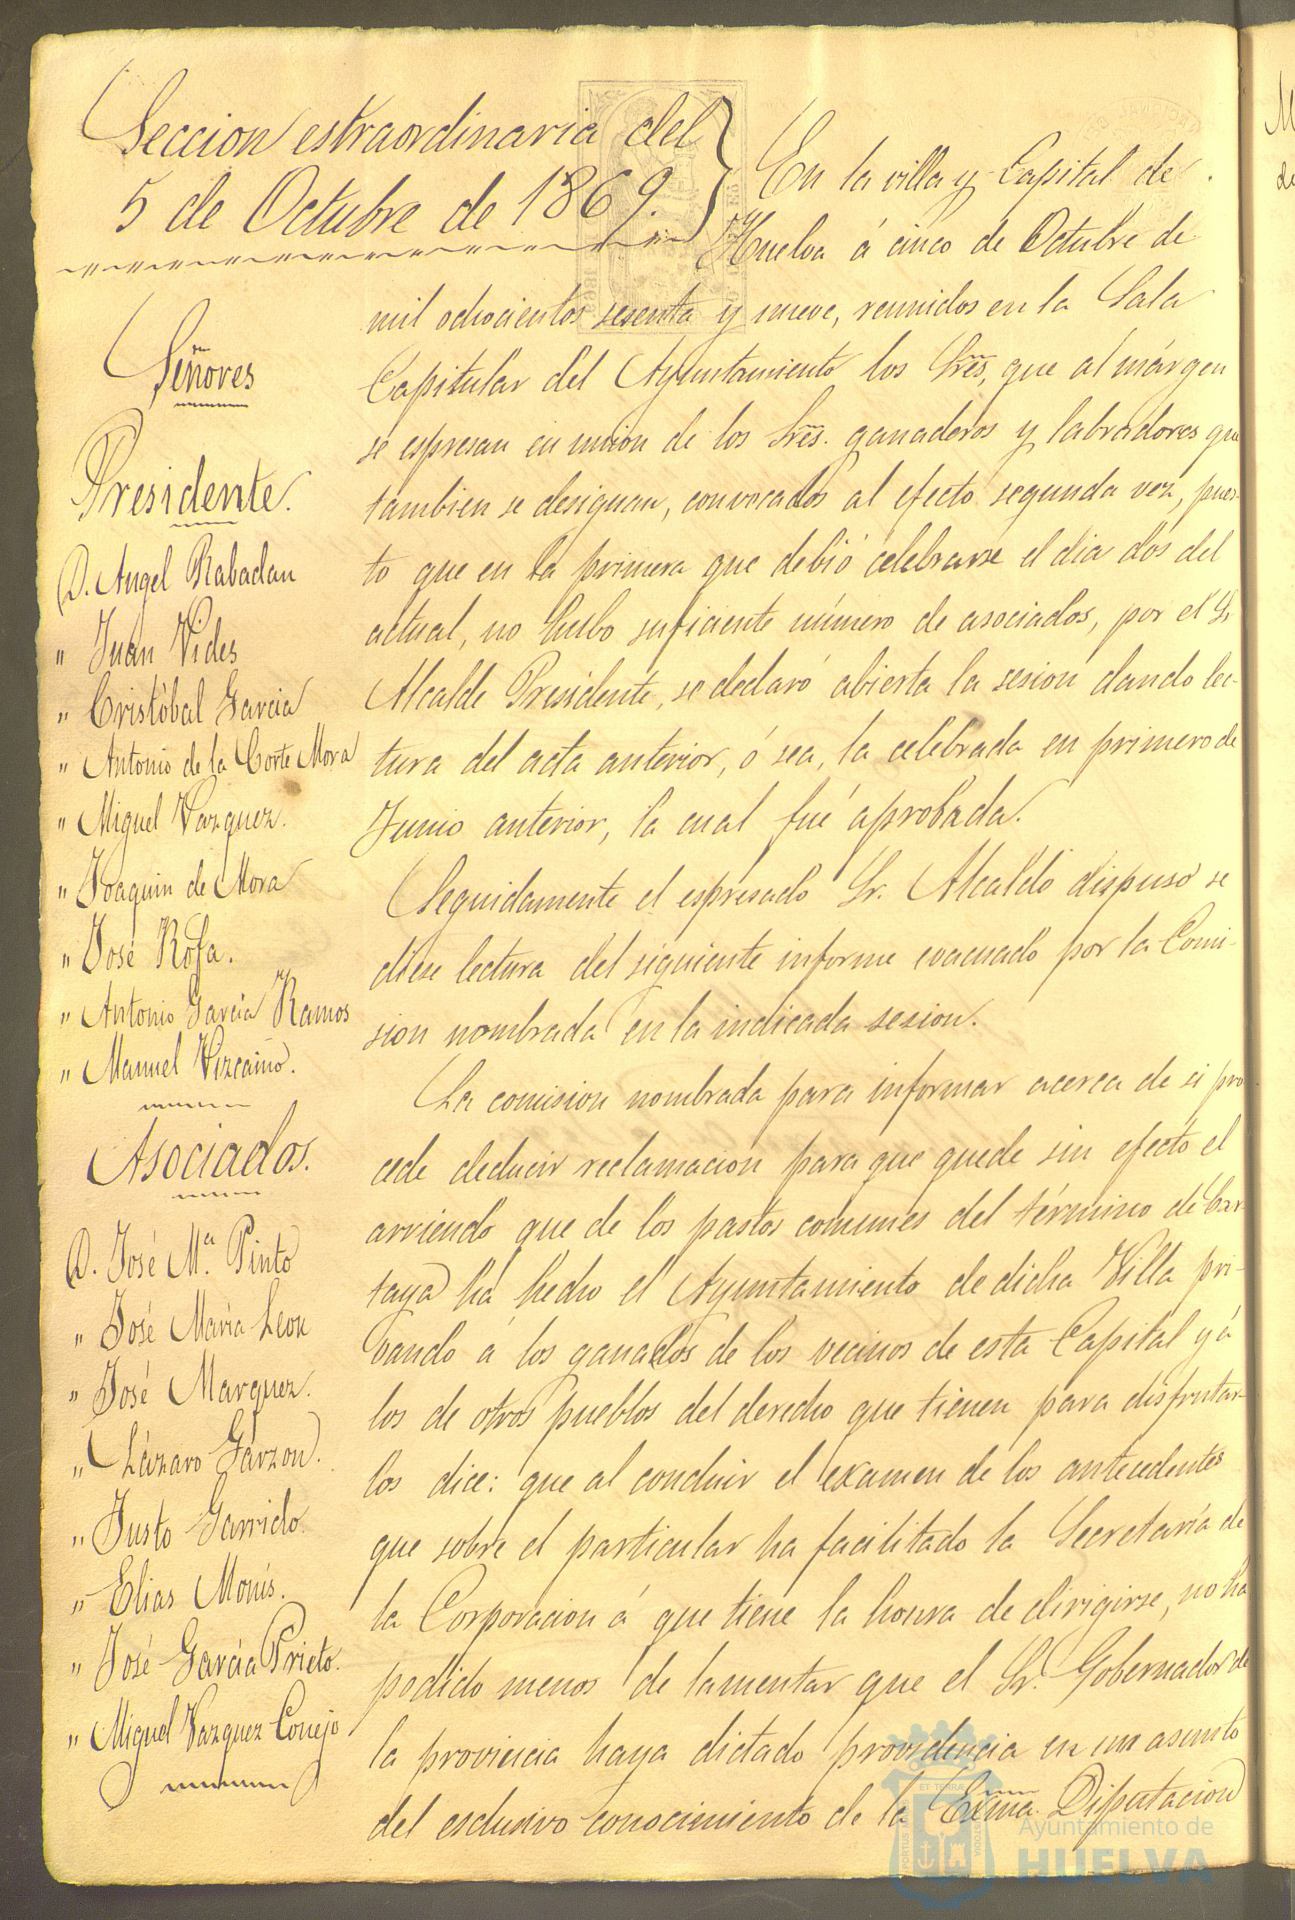 Seccion estraordinaria del
5 de Octubre de 1869.
Señores
Presidente.
D. Angel Rabadan
" Juan Vides
" Cristóbal Garcia
" Antonio de la Corte Mora
" Miguel Vazquez.
" Joaquin de Mora
" José Rofa.
" Antonio Garcia Ramos
" Manuel Vizcaino.
Asociados.
D. José Mª. Pinto
" José Maria Leon
" José Marquez.
" Lázaro Garzon.
" Justo Garrido.
" Elias Monis.
" José Garcia Prieto.
" Miguel Vazquez Conejo
En la villa y Capital de
Huelva á cinco de Octubre de
mil ochocientos sesenta y nueve, reunidos en la Sala
Capitular del Ayuntamiento los Sres, que al márgen
se espresan en union de los Sres. ganaderos y labradores que
tambien se designan, convocados al efecto segunda vez, pues-
to que en la primera que debió celebrarse el dia dos del
actual, no hubo suficiente número de asociados, por el Sr
Alcalde Presidente, se declaró abierta la sesion dando lec-
tura del acta anterior, ó sea, la celebrada en primero de
Junio anterior, la cual fué aprobada.
Seguidamente el espresado Sr. Alcalde dispuso se
diese lectura del siguiente informe evacuado por la Comi-
sion nombrada en la indicada sesion.
La comision nombrada para informar acerca de si pro-
cede deducir reclamacion para que quede sin efecto el
arriendo que de los pastos comunes del término de Car-
taya ha hecho el Ayuntamiento de dicha Villa pri-
vando á los ganados de los vecinos de esta Capital y á
los de otros pueblos del derecho que tienen para disfrutar-
los dice: que al concluir el examen de los antecedentes
que sobre el particular ha facilitado la Secretaría de
la Corporacion á que tiene la honra de dirigirse, no ha
podido menos de lamentar que el Sr. Gobernador de
la provincia haya dictado providencia en un asunto
del esclusivo conocimiento de la Exma. Diputacion
Ayuntamiento de
HUELVA